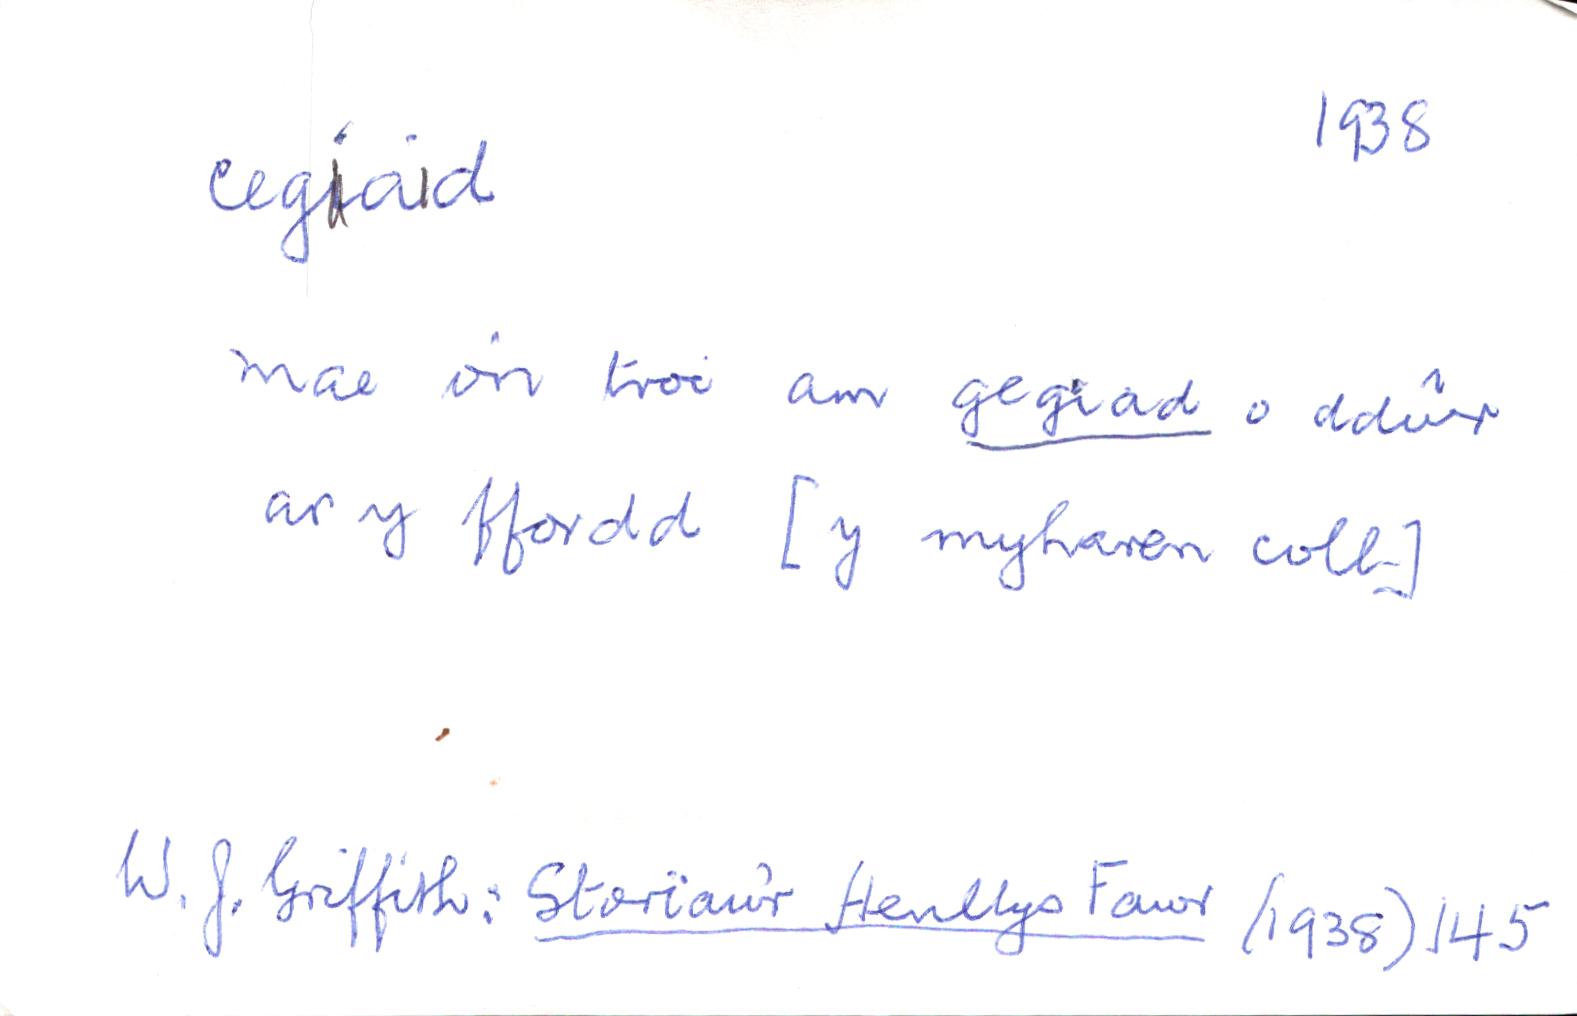 1938
cegaid
mae o'n troi am gegiad o ddŵr
ar y ffordd [y myharen coll-]
W. J. Griffith: Storïau'r Henllys Fawr (1938) 145